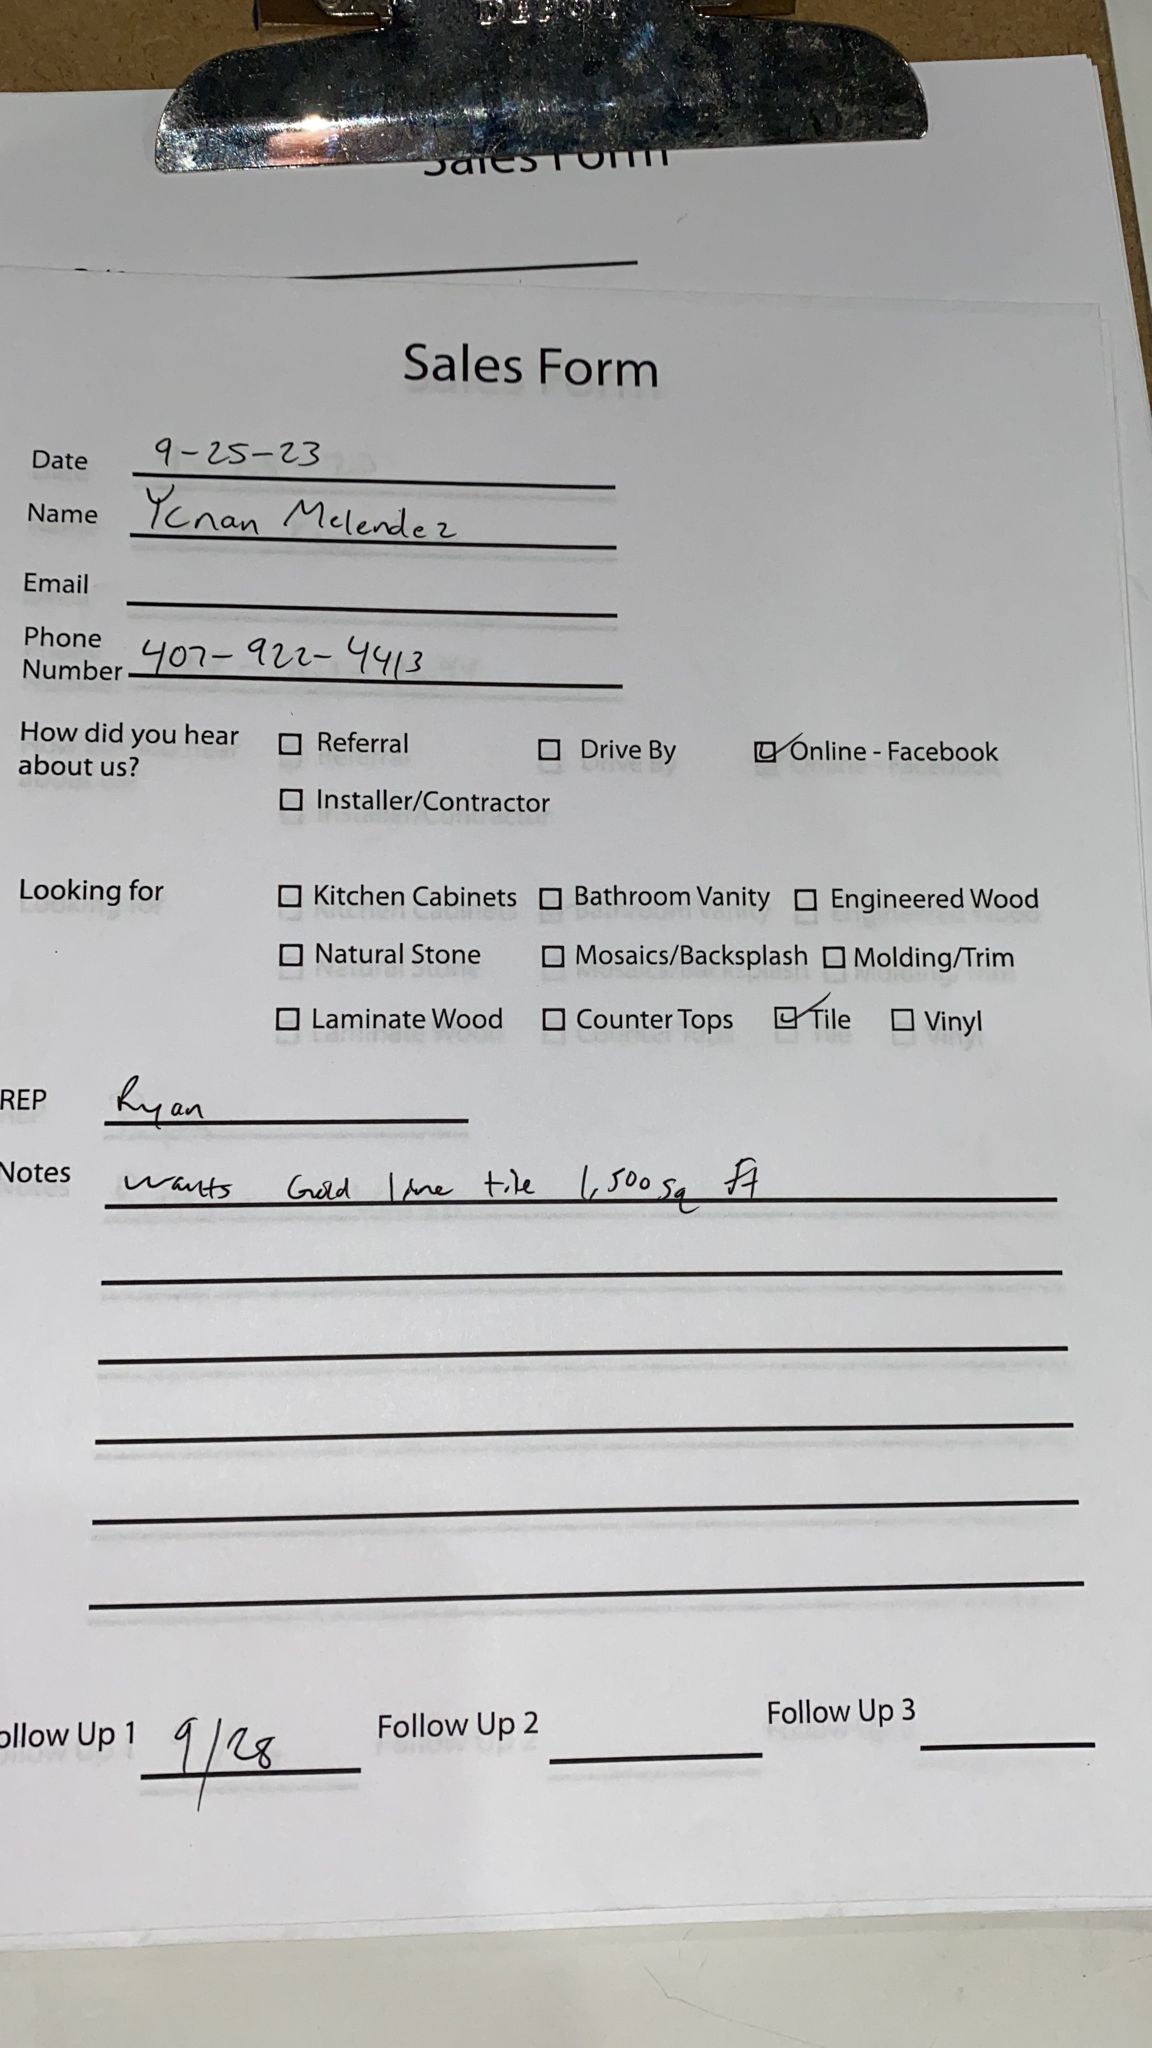 DEPOT
Sales Form
Sales Form
Date 9-25-23
Name Yenan Melendez
Email
Phone
Number 407-922-4413
How did you hear about us? ☐ Referral ☐ Drive By ☑ Online - Facebook
☐ Installer/Contractor
Looking for ☐ Kitchen Cabinets ☐ Bathroom Vanity ☐ Engineered Wood
☐ Natural Stone ☐ Mosaics/Backsplash ☐ Molding/Trim
☐ Laminate Wood ☐ Counter Tops ☑ Tile ☐ Vinyl
REP Ryan
Notes wants Gold line tile 1,500 sq ft
ollow Up 1 9/28 Follow Up 2 Follow Up 3